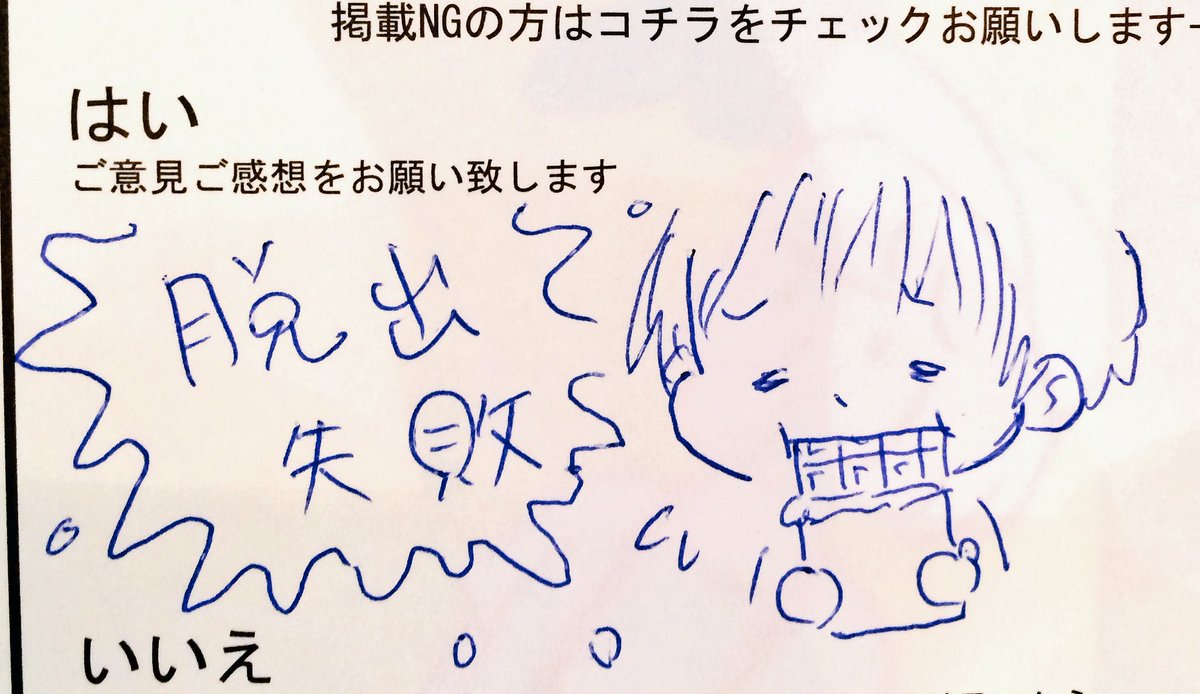 掲載NGの方はコチラをチェックお願いします
はい
ご意見ご感想をお願い致します
脱出
失敗
いいえ